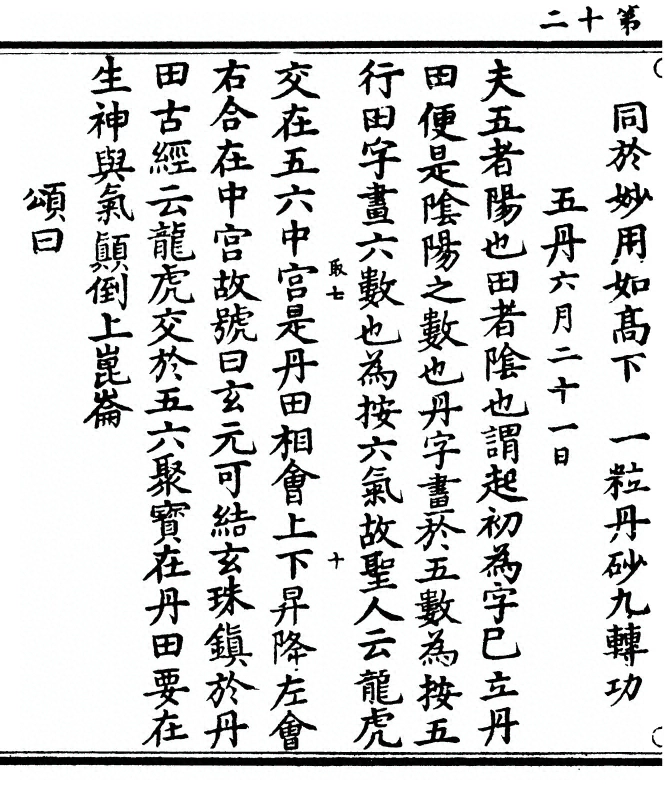 第十二
同於妙用如高下　一粒丹砂九轉功
五丹六月二十一日
夫五者陽也田者陰也謂起初為字已立丹
田便是陰陽之數也丹字畫於五數為按五
行田字畫六數也為按六氣故聖人云龍虎
交在五六中宮是丹田相會上下昇降左會
右合在中宮故號曰玄元可結玄珠鎮於丹
田古經云龍虎交於五六聚寶在丹田要在
生神與氣顛倒上崑崙
頌曰
取七
十